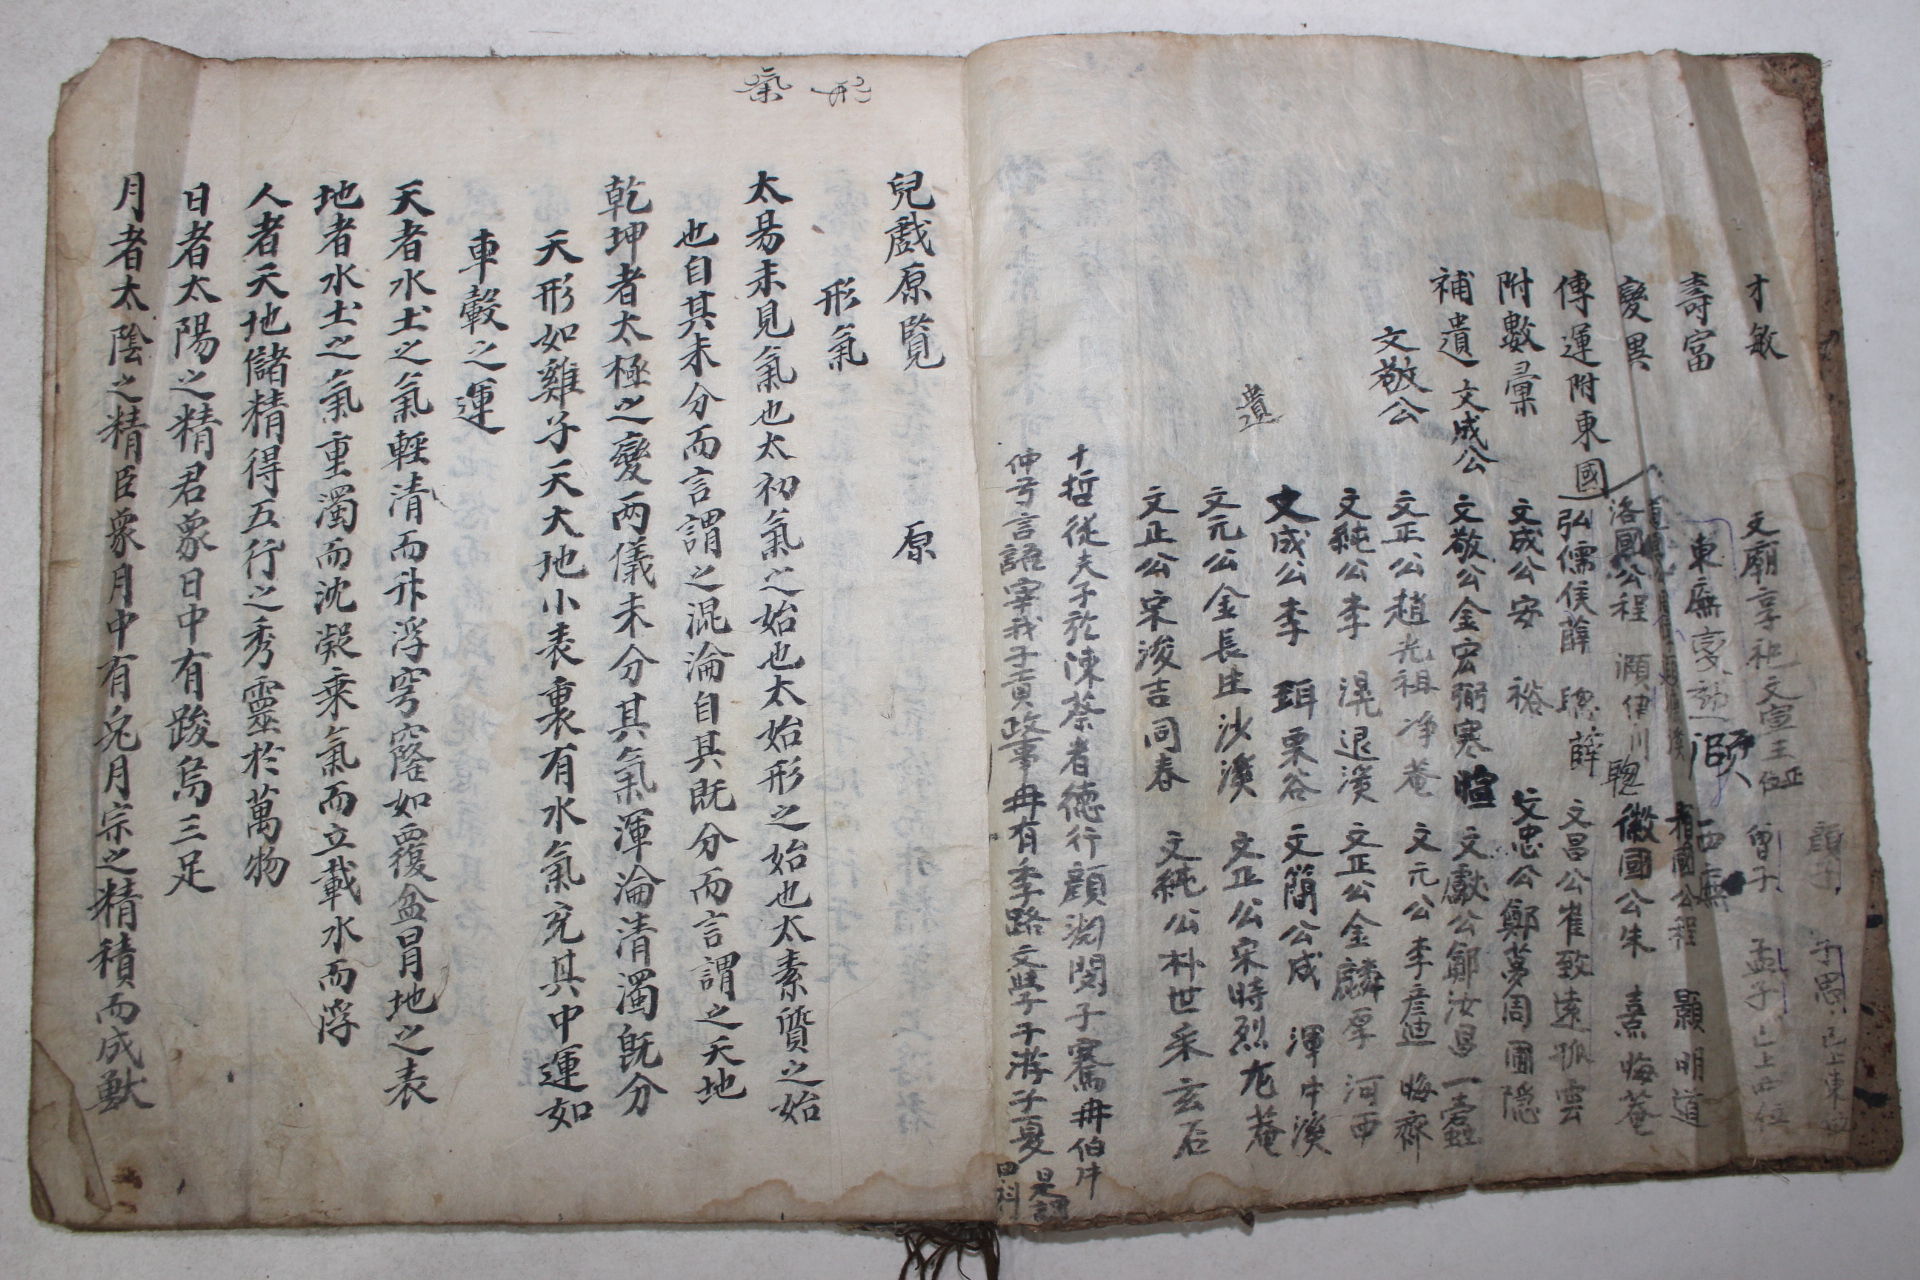 才敏
壽富
變異
傳運附東國
附數彙
補遺 文成公
文敬公
遺
文廟享祀文宣王正位
顔子 子思 已上東
曾子 孟子 已上西位
東廡 西廡
頥
道國公 豫國公程 顥 明道
洛國公程 頥 伊川 徽國公朱 熹 晦菴
弘儒侯薛 聰 薛聰 文昌公崔致遠 孤雲
文成公安 裕 文忠公鄭夢周 圃隱
文敬公金宏弼 寒暄 文獻公鄭汝昌 一蠹
文正公趙光祖 净菴 文元公李彦迪 晦齋
文純公李 滉 退溪 文正公金麟厚 河西
文成公李 珥 栗谷 文簡公成 渾 牛溪
文元公金長生 沙溪 文正公宋時烈 尤菴
文正公宋浚吉 同春 文純公朴世采 玄石
十哲從夫子於陳蔡者德行顔淵閔子騫冉伯牛
仲弓言語宰我子貢政事冉有季路文學子游子夏 是謂四科
形 氣
兒戲原覽 原
形氣
太易未見氣也太初氣之始也太始形之始也太素質之始
也自其未分而言謂之混淪自其既分而言謂之天地
乾坤者太極之變两儀未分其氣渾淪清濁旣分
天形如雞子天大地小表裏有水氣充其中運如
車轂之運
天者水土之氣輕清而升浮穹窿如覆盆冒地之表
地者水土之氣重濁而沈凝乘氣而立載水而浮
人者天地儲精得五行之秀靈於萬物
日者太陽之精君象日中有踆烏三足
月者太陰之精臣象月中有兎月宗之精積而成獸